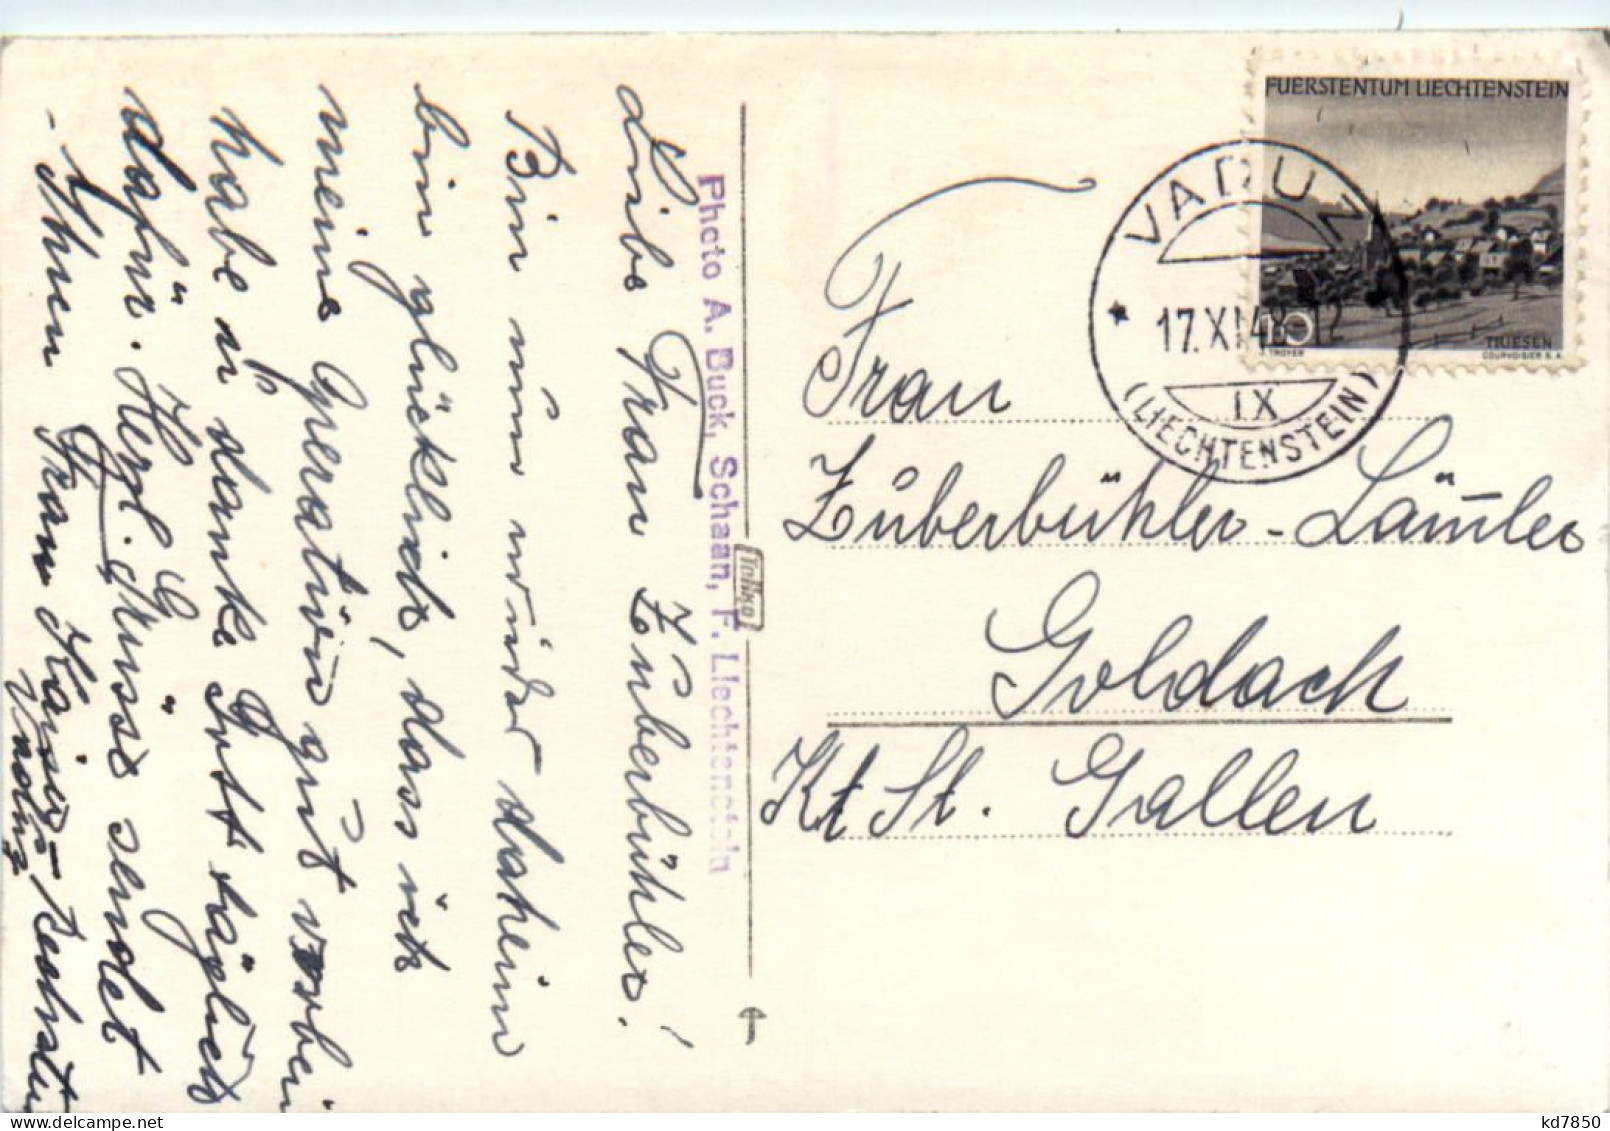 Liebe Frau Züberbühler!
Bin nun wieder daheim
bin glücklich, dass ich
meine Operation gut vorbei
habe u. danke Gott täglich
dafür. Herzl. Grüsse sendet
Ihnen Frau
Vaduz
Photo A. Buck, Schaan, F. Liechtenstein
Telko
FUERSTENTUM LIECHTENSTEIN
10
J. TROYER
TRIESEN
COURVOISIER S.A.
VADUZ
17.XI.48-12
IX
(LIECHTENSTEIN)
Frau
Züberbühler-Lämler
Goldach
Kt St. Gallen
kd7850